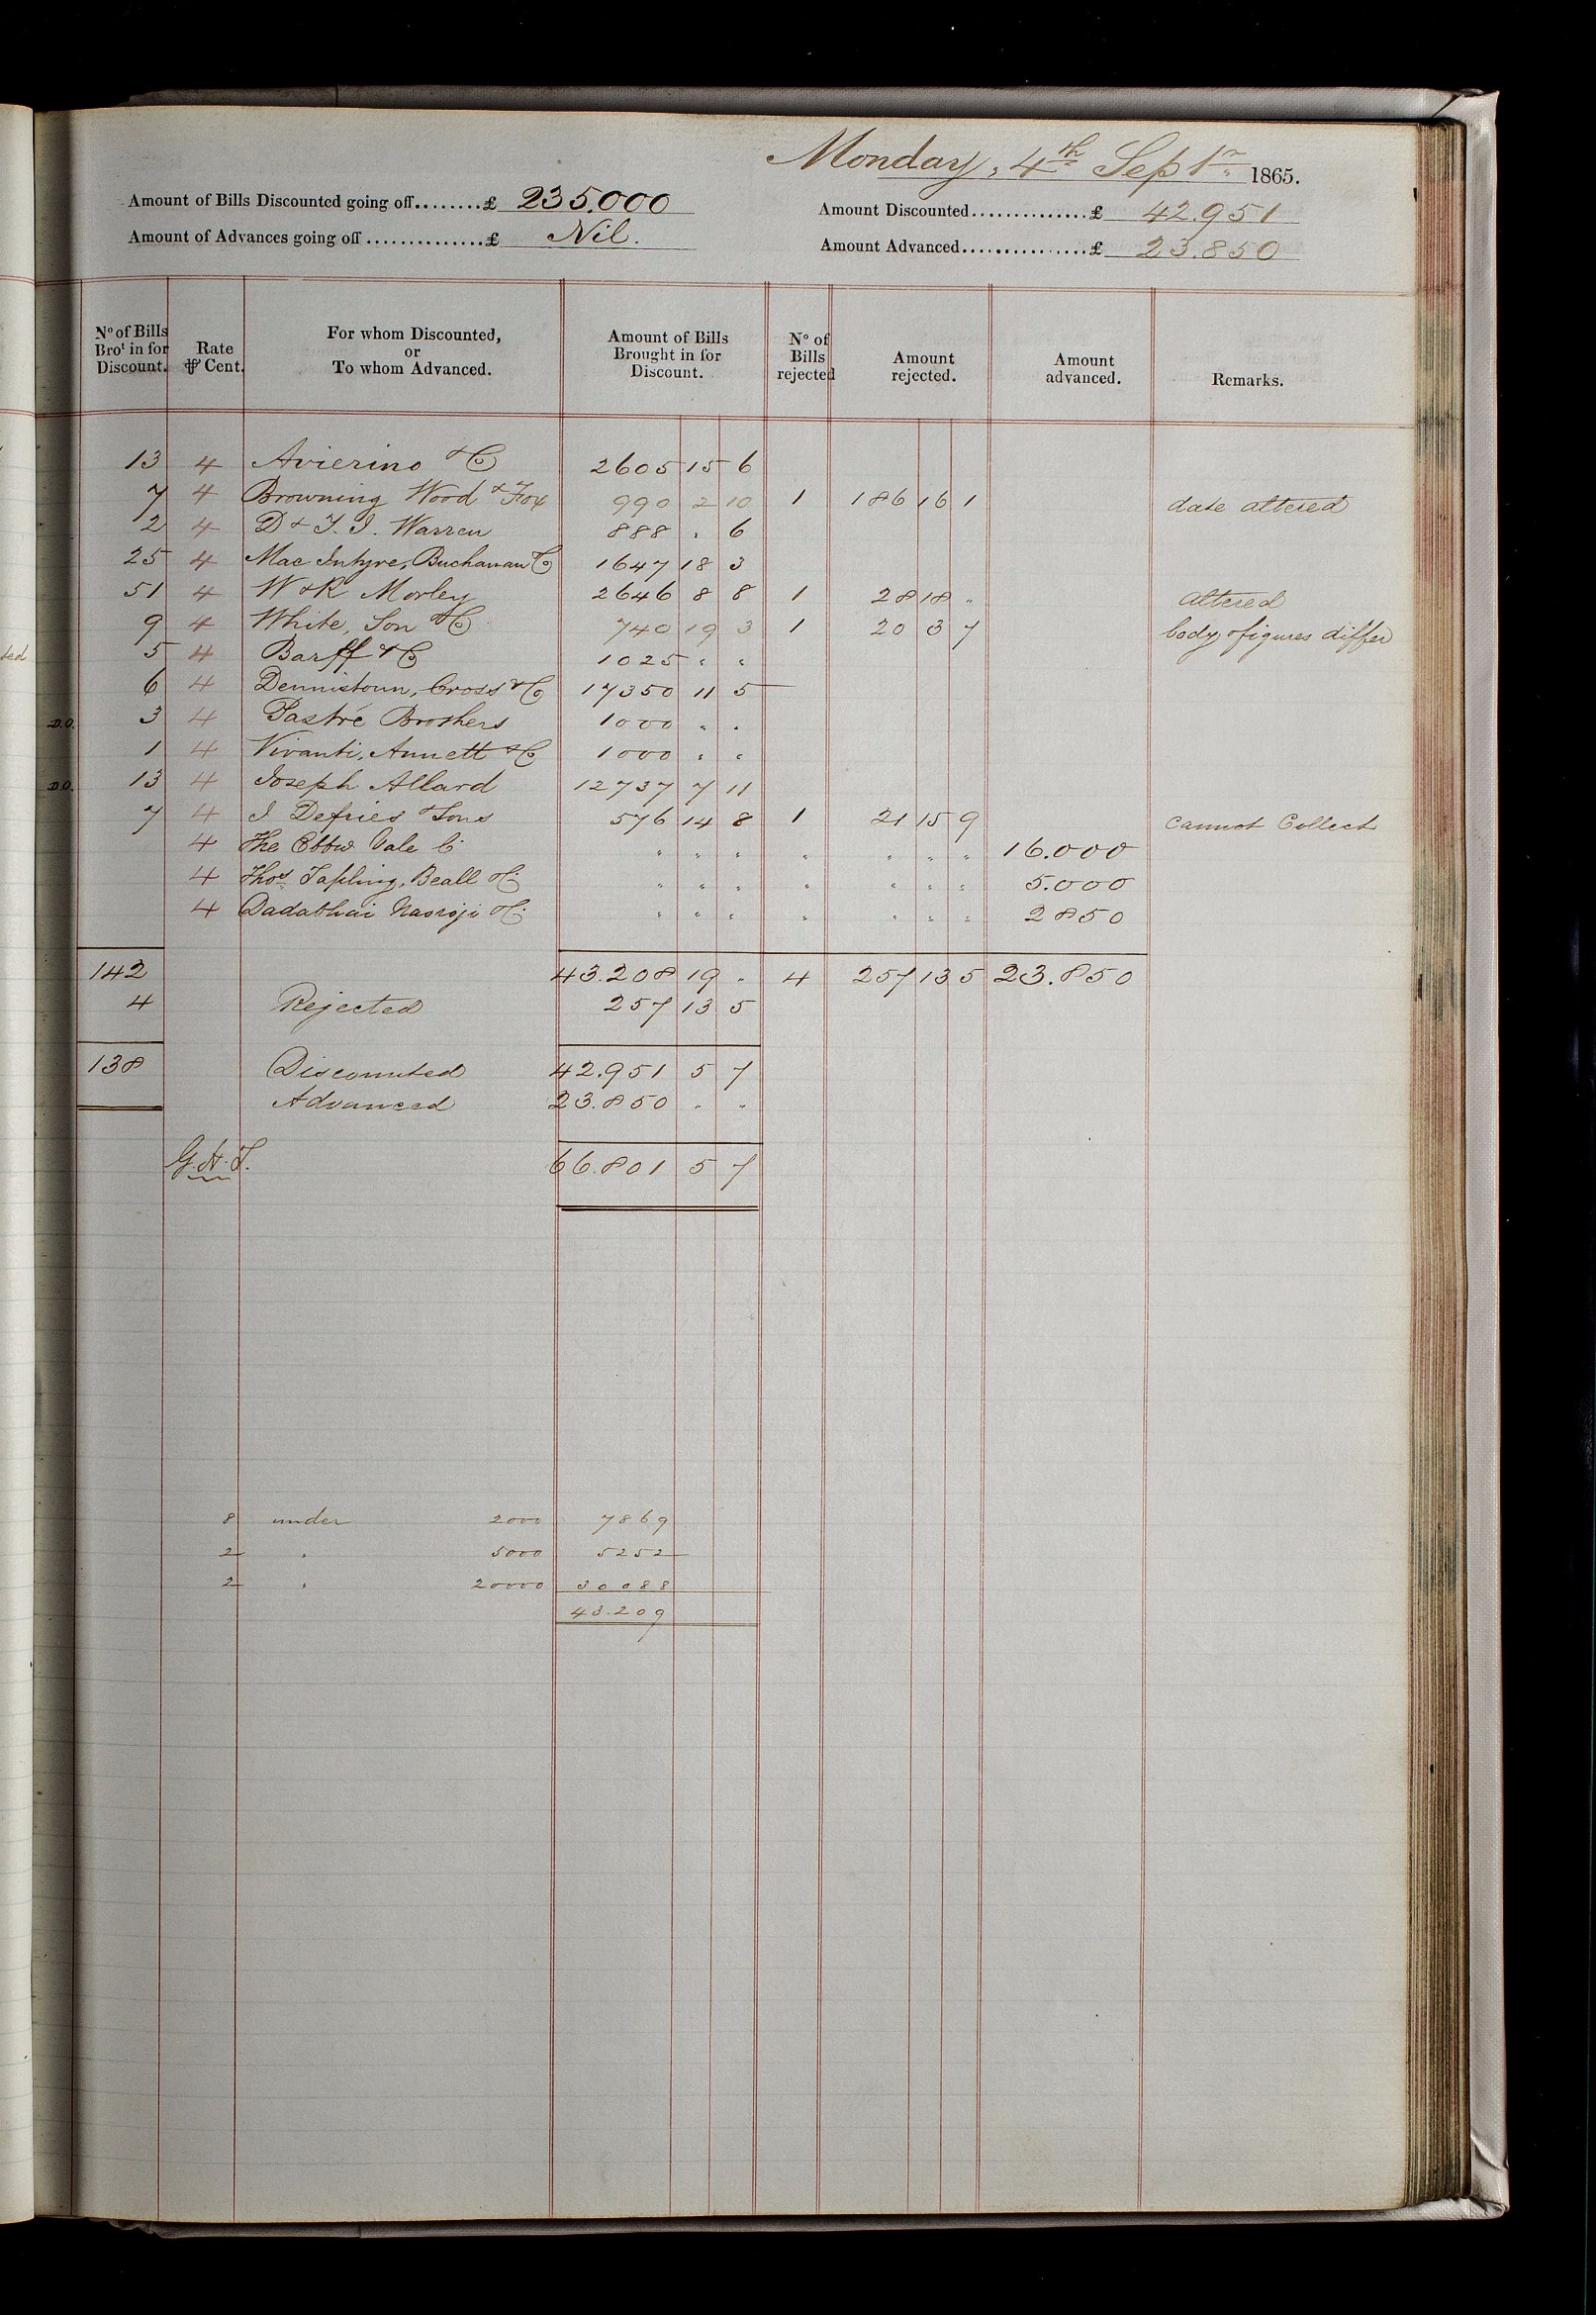 Monday, 4th Septr 1865.
Amount of Bills Discounted going off........£ 235.000
Amount Discounted..............£ 42.951
Amount of Advances going off...............£ Nil.
Amount Advanced................£ 23.850
No of Bills Brot in for Discount. Rate ⅌ Cent. For whom Discounted, or To whom Advanced. Amount of Bills Brought in for Discount. No of Bills rejected Amount rejected. Amount advanced. Remarks.
13 4 Avierino & Co 2605 15 6
7 4 Browning Wood & Fox 990 2 10 1 186 16 1 date altered
2 4 D & T. J. Warren 888 " 6
25 4 Mac Intyre, Buchanan & Co 1647 18 3
51 4 W & R Morley 2646 8 8 1 28 18 " altered
9 4 White, Son & Co 740 19 3 1 20 3 7 body & figures differ
5 4 Barff & Co 1025 " "
6 4 Dennistoun, Cross & Co 17350 11 5
D.O. 3 4 Pastré Brothers 1000 " "
1 4 Vivanti, Annett & Co 1000 " "
D.O. 13 4 Joseph Allard 12737 7 11
7 4 J Defries & Sons 576 14 8 1 21 15 9 cannot Collect
4 The Ebbw Vale Co " " " " " " " 16.000
4 Thos Tapling, Beall & Co " " " " " " " 5.000
4 Dadabhai Naoroji & Co " " " " " " " 2850
142 43.208 19 " 4 257 13 5 23.850
4 Rejected 257 13 5
138 Discounted 42.951 5 7
Advanced 23.850 " "
G.H.T. 66.801 5 7
8 under 2000 7869
2 " 5000 5252
2 " 20000 30088
43.209